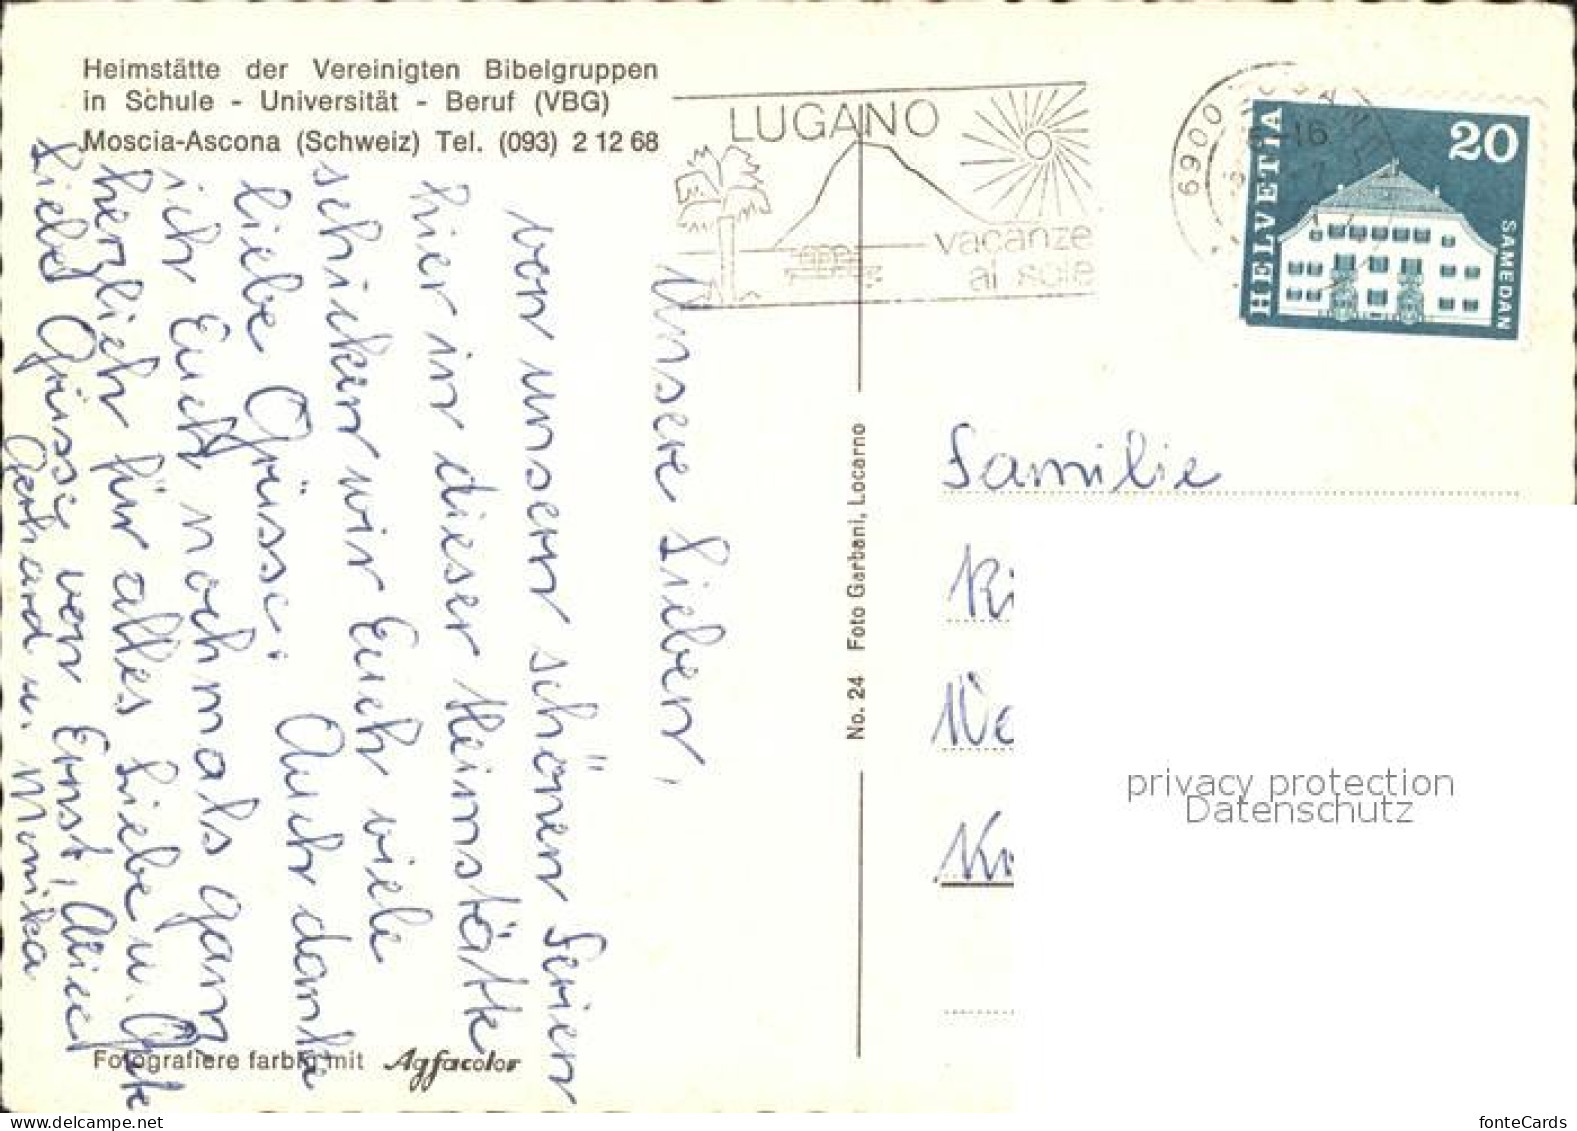 Heimstätte der Vereinigten Bibelgruppen
in Schule - Universität - Beruf (VBG)
Moscia-Ascona (Schweiz) Tel. (093) 2 12 68
Unsere Lieben,
von unsern schönen Ferien
hier in dieser Heimstätte
schicken wir Euch viele
liebe Grüsse. Auch danke
ich Euch nochmals ganz
herzlich für alles Liebe u. Gute
Liebe Grüsse von Ernst,
Gerhard u. Monika
Fotografiere farbig mit Agfacolor
No. 24 Foto Garbani, Locarno
LUGANO
vacanze
al sole
6900
HELVETIA
20
SAMEDAN
Familie
privacy protection
Datenschutz
www.delcampe.net
fonteCards